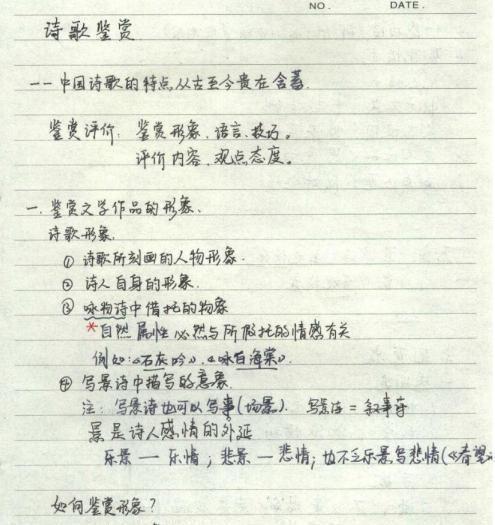 NO. DATE.
诗歌鉴赏
—— 中国诗歌的特点从古至今贵在含蓄.
鉴赏评价: 鉴赏形象、语言、技巧。
评价内容、观点态度。
一. 鉴赏文学作品的形象、
诗歌形象.
① 诗歌所刻画的人物形象.
② 诗人自身的形象.
③ 咏物诗中借托的物象
*自然属性必然与所假托的情感有关
例如:《石灰吟》.《咏白海棠》.
④ 写景诗中描写的意象.
注: 写景诗也可以写事(场景). 写景诗 = 叙事诗
景是诗人感情的外延
乐景 — 乐情; 悲景 — 悲情; 也不乏乐景写悲情(《春望》
如何鉴赏形象?